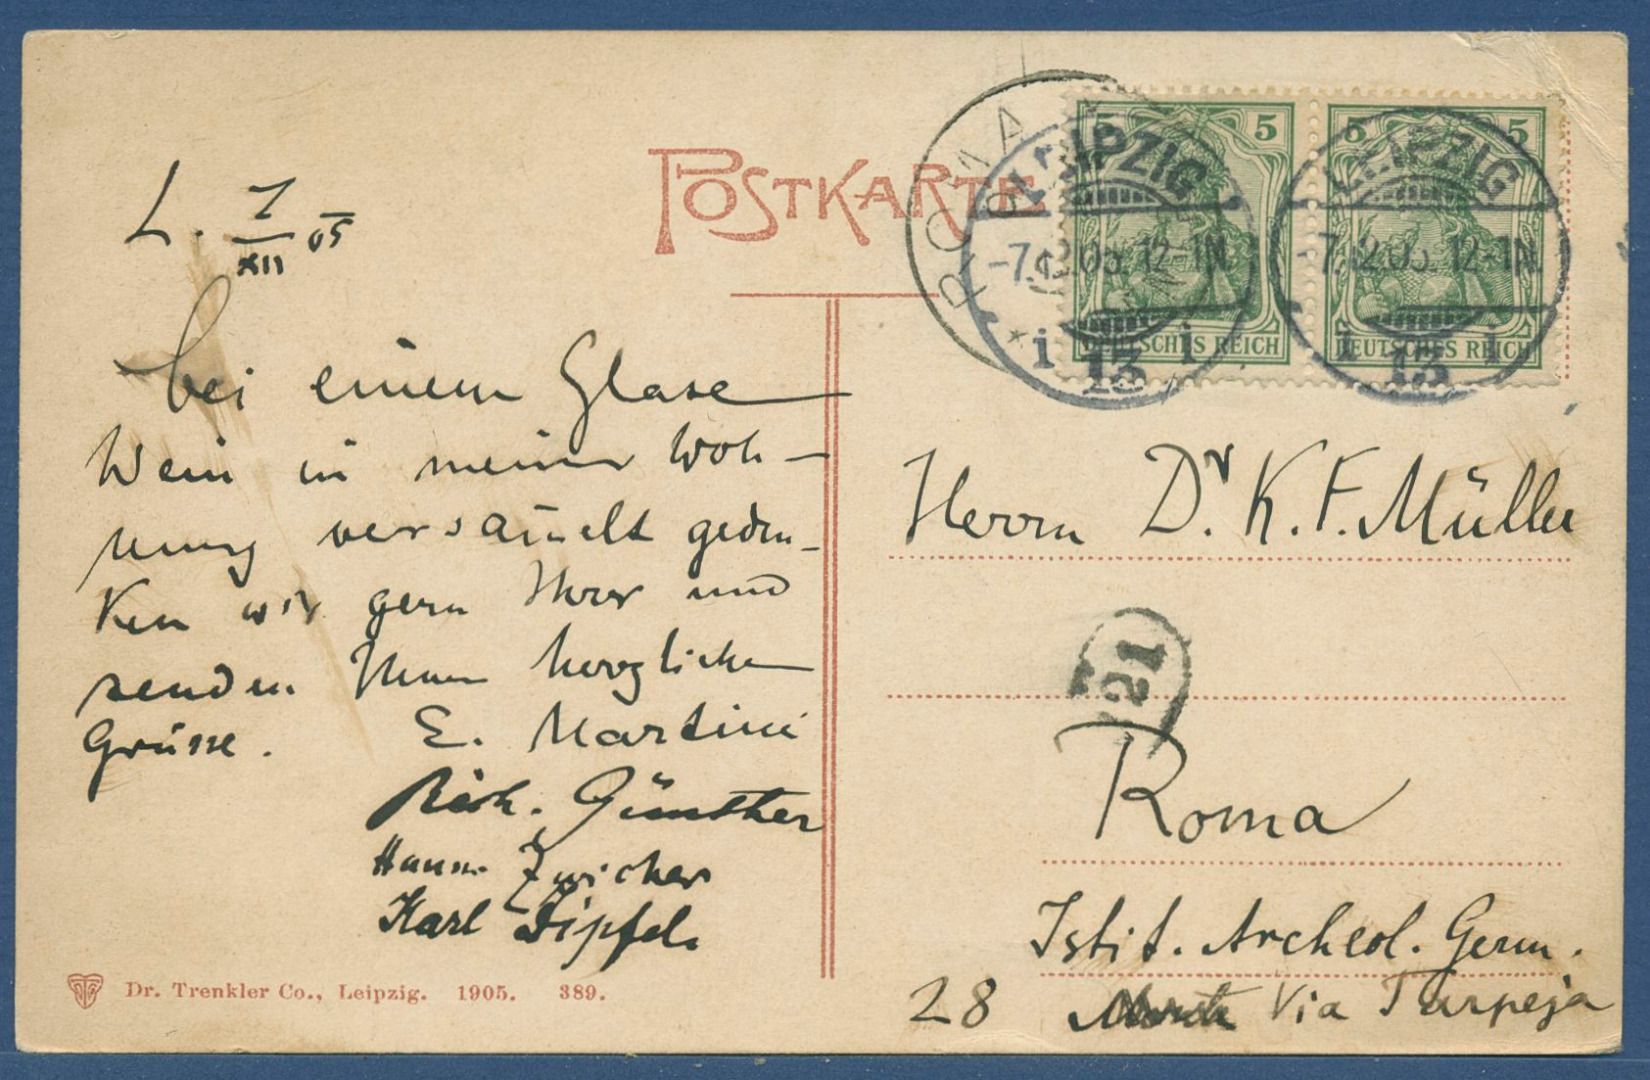 POSTKARTE
ROMA
LEIPZIG
-7.12.05. 12-1N.
* i 13 i
5 5
DEUTSCHES REICH
LEIPZIG
-7.12.05. 12-1N.
i 13 i
5 5
DEUTSCHES REICH
L. 7/XII 05
bei einem Glase
Wein in meiner Woh-
nung versammelt geden-
ken wir gern Ihrer und
senden Ihnen herzlichen
Grüsse.
E. Martini
Rich. Günther
Zwicker
Karl Zipfel.
Herrn Dr. K. F. Müller
21
Roma
Istit. Archeol. Germ.
28 Via Tarpeja
Dr. Trenkler Co., Leipzig. 1905. 389.